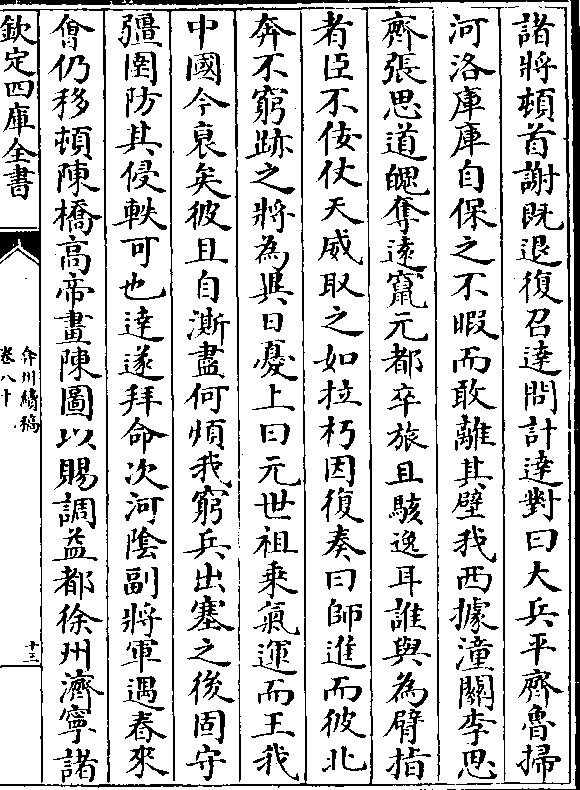 諸將頓首謝既退復召達問計達對曰大兵平齊魯掃
河洛庫庫自保之不暇而敢離其壁我西據潼關李思
齊張思道魄奪遠竄元都卒旅且駭逸耳誰與為臂指
者臣不佞仗天威取之如拉朽因復奏曰師進而彼北
奔不窮跡之將為異日憂上曰元世祖乗氣運而王我
中國今衰矣彼且自澌盡何煩我窮兵出塞之後固守
疆圉防其侵軼可也達遂拜命次河陰副將軍遇春來
㑹仍移頓陳橋高帝畫陳圖以賜調益都徐州濟寧諸
欽定四庫全書
弇州續稿
卷八十
十三